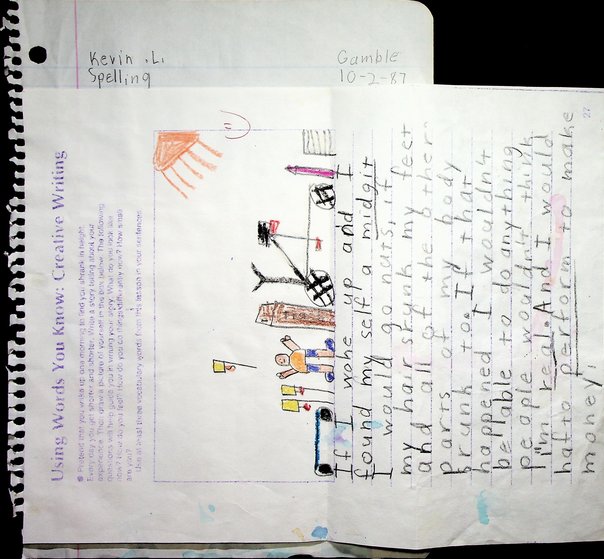 Kevin .L.
Gamble
Spelling
10-2-87
Using Words You Know: Creative Writing
Pretend that you woke up one morning to find you shrank in height.
Every day you get shorter and shorter. Write a story telling about your
experience. Then draw a picture of yourself in the box below. The following
questions will help guide you in writing your story. What do you look like
now? How do you feel? How do you do things differently now? How small
are you?
Use at least three vocabulary words from this lesson in your sentences.
If I woke up and I
found my self a midgit
I would go nuts, if
my hair shrunk my feet
and all of the other
parts of my body
srunk to. If that
happened I wouldn't
bellable to do anything
people wouldn't think
I'm real. And I would
hafto perform to make
money.
27